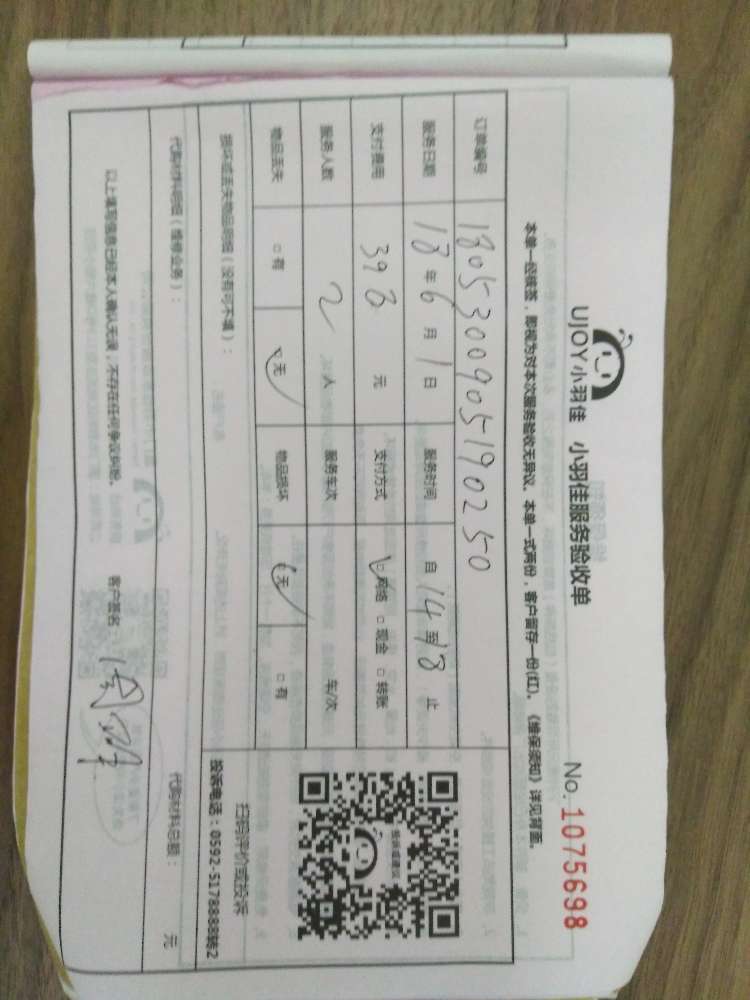 UJOY小羽佳 小羽佳服务验收单 No. 1075698
本单一经核签，即视为对本次服务验收无异议。本单一式两份，客户留存一份(红)。《维保须知》详见背面。
订单编号 1805300905190250
服务日期 18年6月1日 服务时间 自14至18止
支付费用 398元 支付方式 网络 现金 转账
服务人数 2人 服务车次 车/次
物品丢失 有 无 物品损坏 无 有
扫码评价或投诉
损坏或丢失物品明细（没有可不填）： 投诉电话：0592-5178888转2
代购材料明细（维修业务）： 代购材料总额： 元
以上填写信息已经本人确认无误，不存在任何争议纠纷。 客户签名：